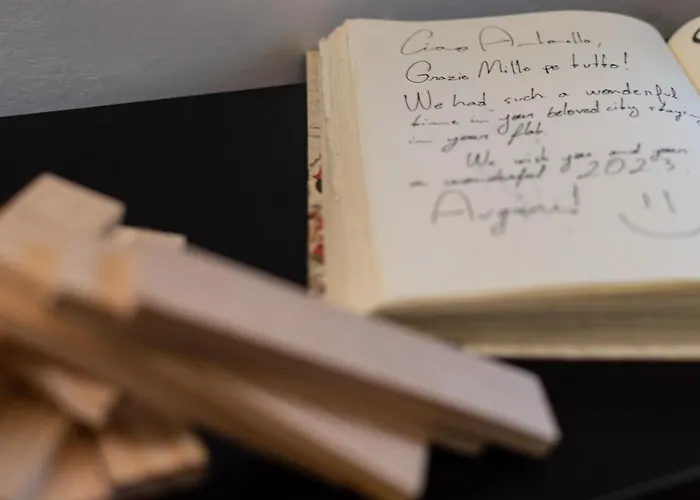 Ciao Antonella,
Grazie Mille pe tutto!
We had such a wonderful
time in your beloved city staying
in your flat.
We wish you and your
a wonderful 2023.
Auguri!